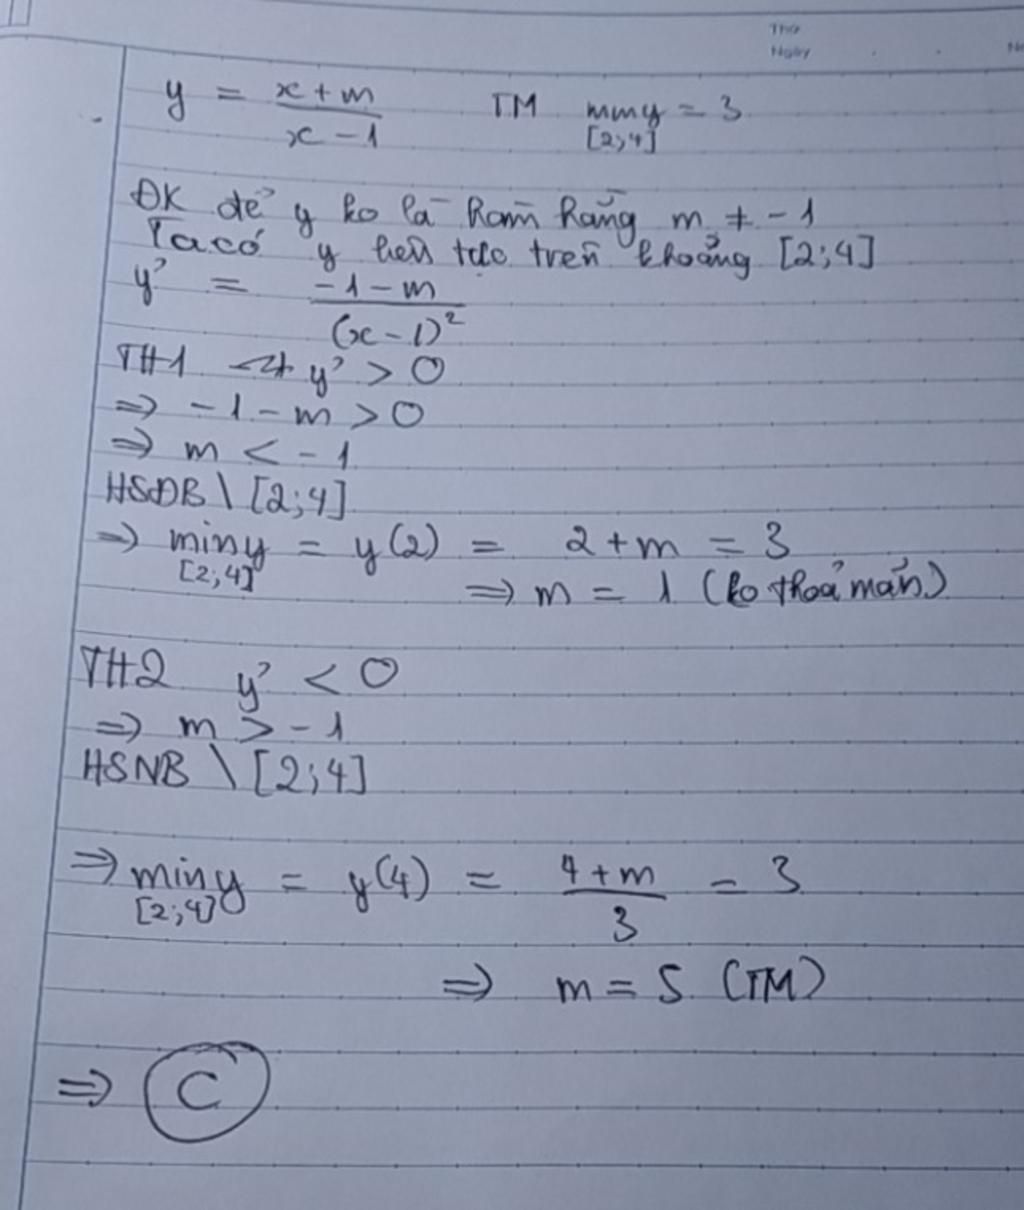 Thứ
Ngày
No
y = \frac{x+m}{x-1} TM min y = 3
[2;4]
ĐK để y ko là hàm hằng m ≠ -1
Ta có y liên tục trên khoảng [2;4]
y' = \frac{-1-m}{(x-1)^2}
TH1 y' > 0
=> -1-m > 0
=> m < -1
HSĐB \ [2;4]
=> min y = y(2) = 2+m = 3
[2;4] => m = 1 (ko thoả mãn)
TH2 y' < 0
=> m > -1
HSNB \ [2;4]
=> min y = y(4) = \frac{4+m}{3} = 3
[2;4]
=> m = 5 (TM)
=> C